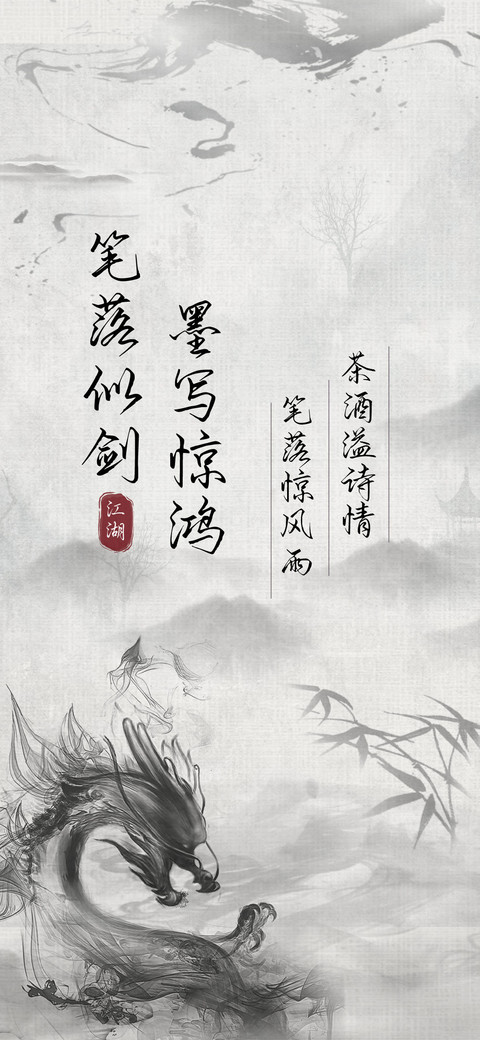 茶酒溢诗情
笔落惊风雨
墨写惊鸿
笔落似剑
江湖